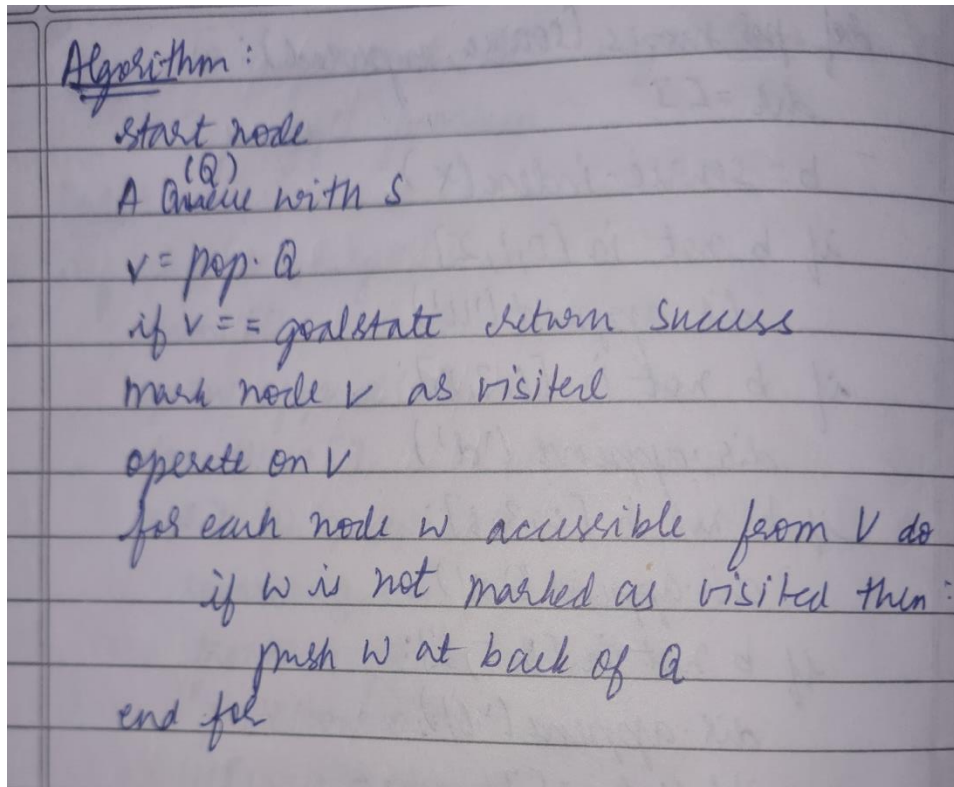 Algorithm :
start node
(Q)
A Queue with S
v = pop. Q
if v == goalstate return success
mark node v as visited
operate on v
for each node w accessible from v do
if w is not marked as visited then :
push w at back of Q
end for